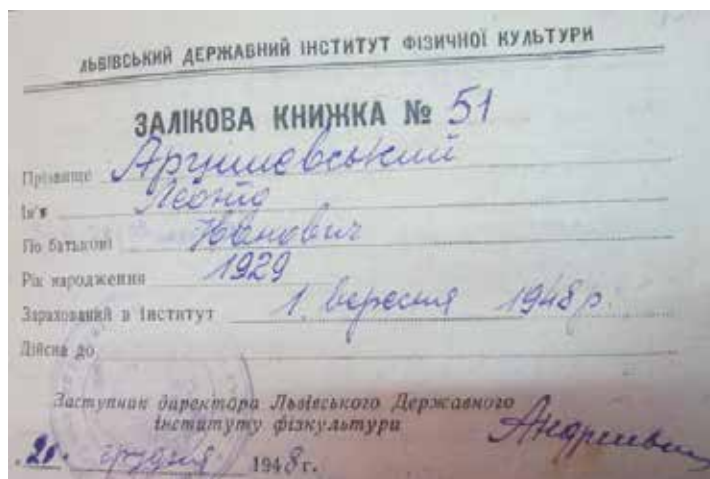 ЛЬВІВСЬКИЙ ДЕРЖАВНИЙ ІНСТИТУТ ФІЗИЧНОЇ КУЛЬТУРИ
ЗАЛІКОВА КНИЖКА № 51
Прізвище
Ім'я Леонід
По батькові Іванович
Рік народження 1929
Зарахований в Інститут 1 вересня 1948 р.
Дійсна до
Заступник директора Львівського Державного
Інституту фізкультури
грудня 1948 г.